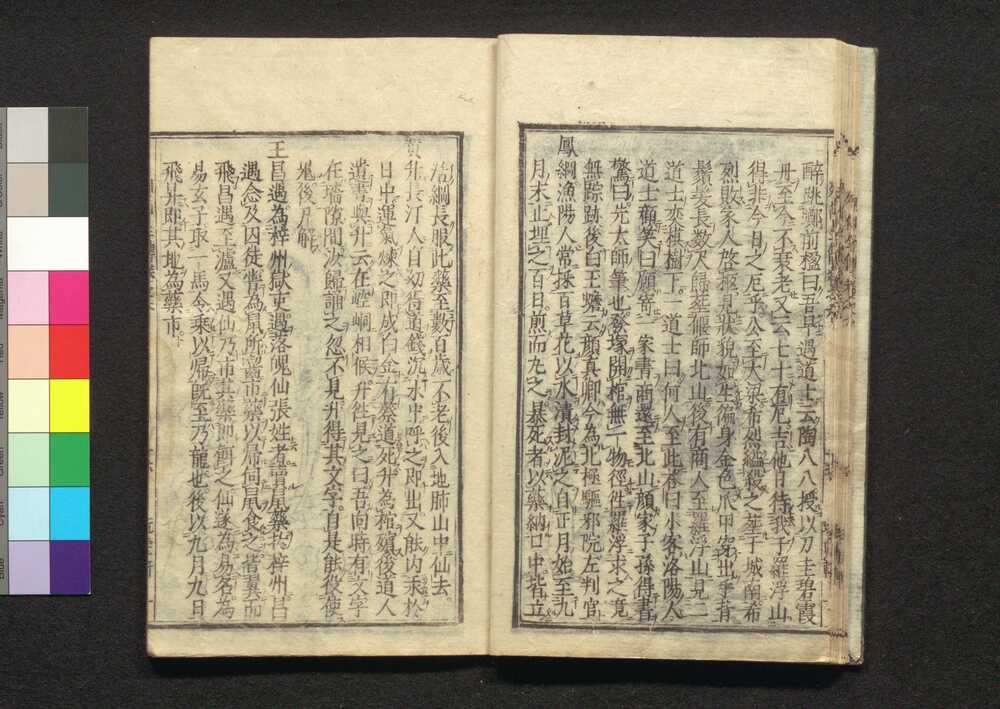 醉跳躑前楹曰吾早過道士云陶八八授以刀圭碧霞
丹至今不衰老又云七十有厄吉他日待我于羅浮山
得非今日之厄乎公至大梁希烈縊殺之葬于城南希
烈敗家人啓柩見狀貌如生徧身金色爪甲穿出手背
鬚髮長數尺歸葬偃師北山後有商人至羅浮山見二
道士奕棋樹下一道士曰何人至此荅曰小客洛陽人
道士顧笑曰願寄一家書商還至北山顏家子孫得書
驚曰先太師筆也發塚開棺無一物徑往羅浮求之竟
無踪跡後白玉蟾云顏真卿今為北極驅邪院左判官
鳳綱漁陽人常採百草花以水漬封泥之自正月始至九
月末止埋之百日煎而丸之暴死者以藥納口中皆立
活綱長服此藥至數百歲不老後入地肺山中仙去
黃升長汀人自幼得道錢沉水中呼之即出又能内汞於
日中運氣煉之即成白金有蔡道死升為棺殯後道人
遺書與升云在崆峒相候升往見之曰吾向時有文字
在牆隙間汝歸誦之忽不見升得其文字自是能役使
鬼後尸解
王昌遇為梓州獄吏遇落魄仙張姓者賣鼠藥于梓州昌
遇念及囚徒嘗為鼠所嚙市藥以歸何鼠食之皆翼而
飛昌遇至瀘又遇仙乃市其藥即餌之仙遂為易名為
易玄子取一馬令乘以歸既至乃龍也後以九月九日
飛昇即其地為藥市